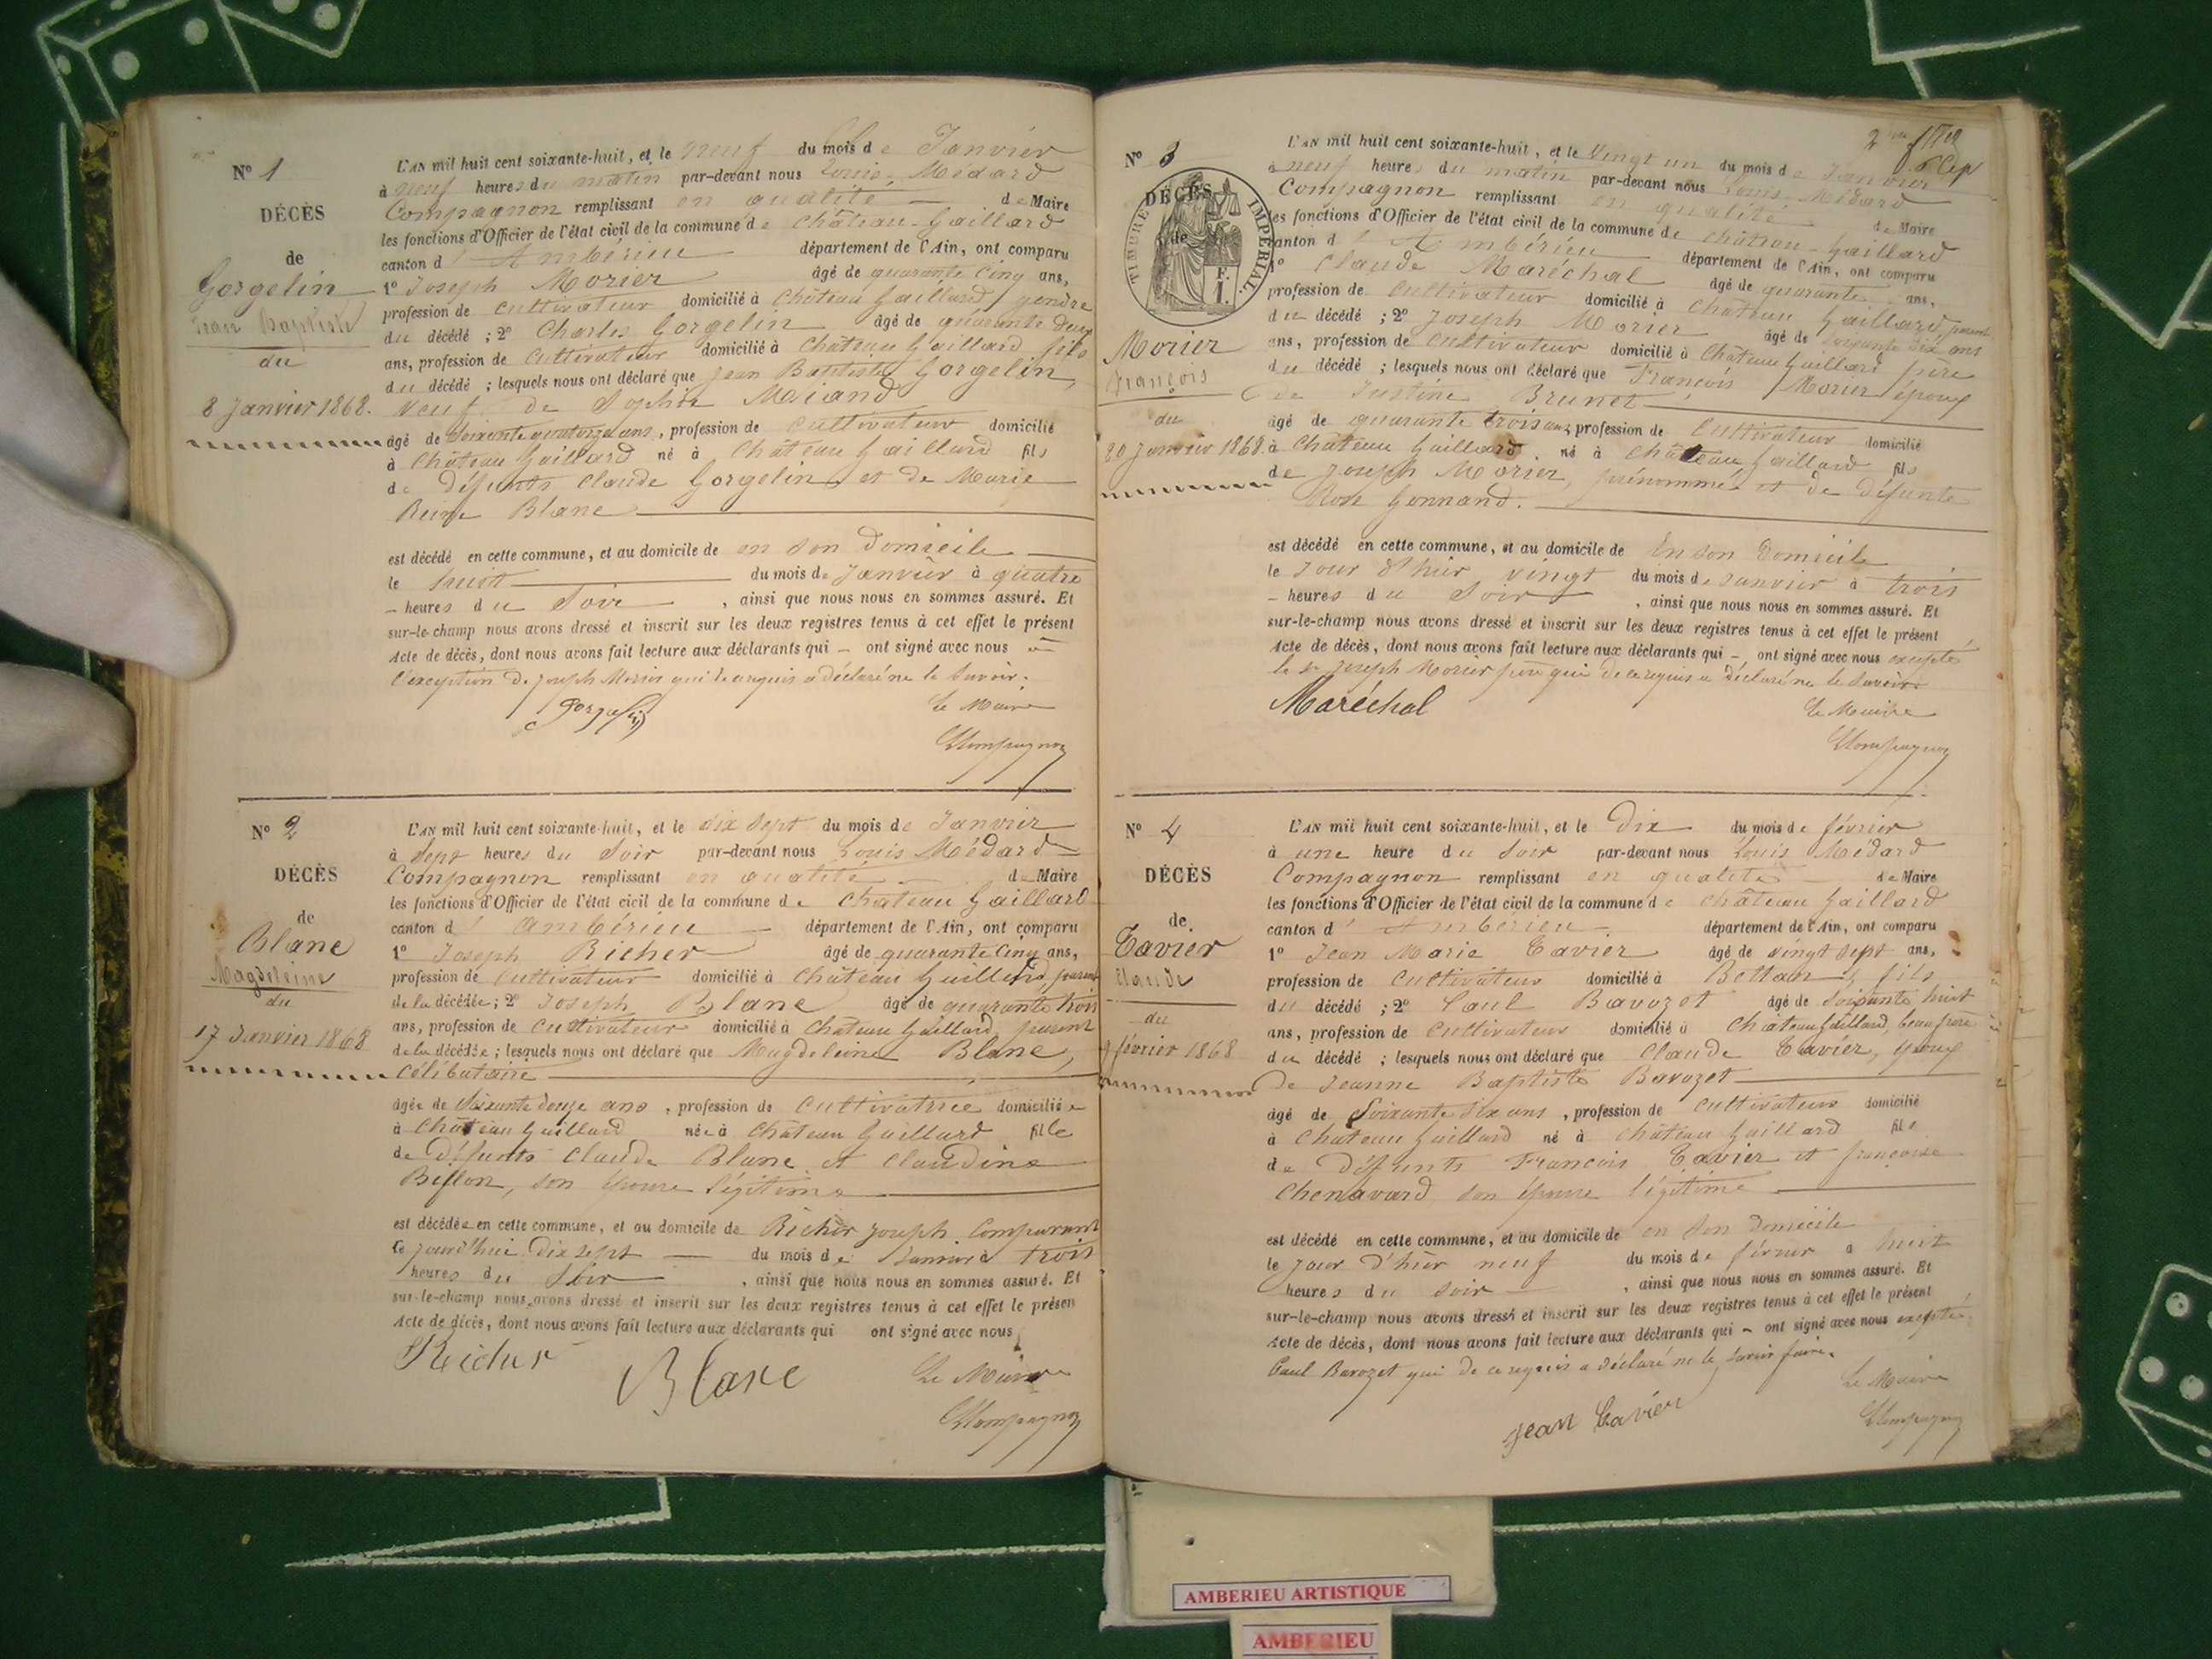 Nº 1
DÉCÈS
de
Gorgelin
Jean Baptiste
du
8 Janvier 1868.
L'AN mil huit cent soixante-huit, et le neuf du mois de Janvier
à neuf heures du matin par-devant nous Louis Médard
Compagnon remplissant en qualité de Maire
les fonctions d'Officier de l'état civil de la commune de Château-Gaillard
canton d'Ambérieu département de l'Ain, ont comparu
1º Joseph Morier âgé de quarante cinq ans,
profession de cultivateur domicilié à Château Gaillard, gendre
du décédé ; 2º Charles Gorgelin âgé de quarante deux
ans, profession de cultivateur domicilié à Château Gaillard fils
du décédé ; lesquels nous ont déclaré que Jean Baptiste Gorgelin,
veuf de Sophie
âgé de soixante quatorze ans, profession de cultivateur domicilié
à Château Gaillard né à Château Gaillard fils
de défunts Claude Gorgelin et de Marie
Reine Blanc
est décédé en cette commune, et au domicile de en son domicile
le huit du mois de Janvier à quatre
heures du soir , ainsi que nous nous en sommes assuré. Et
sur-le-champ nous avons dressé et inscrit sur les deux registres tenus à cet effet le présent
Acte de décès, dont nous avons fait lecture aux déclarants qui ont signé avec nous à
l'exception de Joseph Morier qui de ce requis a déclaré ne le savoir.
Le Maire
Compagnon
Nº 2
DÉCÈS
de
Blanc
Magdeleine
du
17 Janvier 1868
L'AN mil huit cent soixante-huit, et le dix sept du mois de Janvier
à sept heures du soir par-devant nous Louis Médard
Compagnon remplissant en qualité de Maire
les fonctions d'Officier de l'état civil de la commune de Château Gaillard
canton d'Ambérieu département de l'Ain, ont comparu
1º Joseph Richer âgé de quarante cinq ans,
profession de cultivateur domicilié à Château Gaillard, parent
de la décédée ; 2º Joseph Blanc âgé de quarante trois
ans, profession de cultivateur domicilié à Château Gaillard, parent
de la décédée ; lesquels nous ont déclaré que Magdeleine Blanc,
célibataire
âgée de soixante douze ans, profession de cultivatrice domiciliée
à Château Gaillard née à Château Gaillard fille
de défunts Claude Blanc et Claudine
son épouse légitime
est décédée en cette commune, et au domicile de Richer Joseph Comparant
le jourd'hui dix sept du mois de Janvier à trois
heures du soir , ainsi que nous nous en sommes assuré. Et
sur-le-champ nous avons dressé et inscrit sur les deux registres tenus à cet effet le présen
Acte de décès, dont nous avons fait lecture aux déclarants qui ont signé avec nous
Richer Blanc Le Maire
Compagnon
Nº 3
DÉCÈS
de
TIMBRE IMPÉRIAL.
Morier
François
du
20 Janvier 1868.
L'AN mil huit cent soixante-huit, et le vingt un du mois de Janvier
à neuf heures du matin par-devant nous Louis Médard
Compagnon remplissant en qualité de Maire
les fonctions d'Officier de l'état civil de la commune de Château-Gaillard
canton d'Ambérieu département de l'Ain, ont comparu
1º Claude Maréchal âgé de quarante ans,
profession de cultivateur domicilié à Château Gaillard, parent
du décédé ; 2º Joseph Morier âgé de soixante dix ans
ans, profession de cultivateur domicilié à Château Gaillard père
du décédé ; lesquels nous ont déclaré que François Morier époux
de Justine Brunet
âgé de quarante trois ans, profession de cultivateur domicilié
à Château Gaillard, né à Château Gaillard fils
de Joseph Morier, prénommé et de défunte
Rose Gonnand.
est décédé en cette commune, et au domicile de En son domicile
le jour d'hier vingt du mois de Janvier à trois
heures du soir , ainsi que nous nous en sommes assuré. Et
sur-le-champ nous avons dressé et inscrit sur les deux registres tenus à cet effet le présent
Acte de décès, dont nous avons fait lecture aux déclarants qui ont signé avec nous excepté
le sr Joseph Morier père qui de ce requis a déclaré ne le savoir.
Maréchal Le Maire
Compagnon
Nº 4
DÉCÈS
de
Tavier
Claude
du
9 février 1868
L'AN mil huit cent soixante-huit, et le dix du mois de février
à une heure du soir par-devant nous Louis Médard
Compagnon remplissant en qualité de Maire
les fonctions d'Officier de l'état civil de la commune de Château Gaillard
canton d'Ambérieu département de l'Ain, ont comparu
1º Jean Marie Tavier âgé de vingt sept ans,
profession de cultivateur domicilié à Bettant, fils
du décédé ; 2º Paul Bavozet âgé de soixante huit
ans, profession de cultivateur domicilié à Château Gaillard, beau frère
du décédé ; lesquels nous ont déclaré que Claude Tavier, époux
de Jeanne Baptiste Bavozet
âgé de soixante dix ans, profession de cultivateur domicilié
à Château Gaillard né à Château Gaillard fils
de défunts François Tavier et Françoise
Chenavard son épouse légitime
est décédé en cette commune, et au domicile de en son domicile
le jour d'hier neuf du mois de février à huit
heures du soir , ainsi que nous nous en sommes assuré. Et
sur-le-champ nous avons dressé et inscrit sur les deux registres tenus à cet effet le présent
Acte de décès, dont nous avons fait lecture aux déclarants qui ont signé avec nous excepté
Paul Bavozet qui de ce requis a déclaré ne le savoir faire.
Jean Tavier Le Maire
Compagnon
AMBERIEU ARTISTIQUE
AMBERIEU